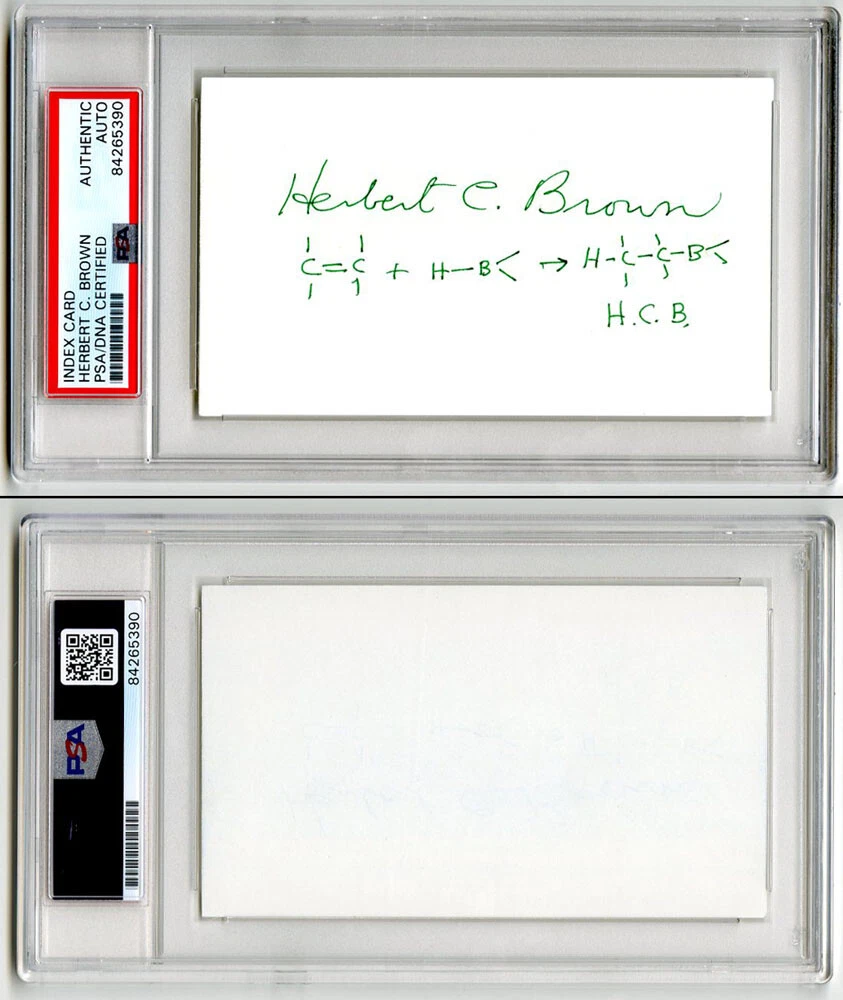 INDEX CARD
HERBERT C. BROWN
PSA/DNA CERTIFIED
AUTHENTIC
AUTO
84265390
PSA
Herbert C. Brown
C=C + H-B< → H-C-C-B<
H.C.B.
84265390
PSA